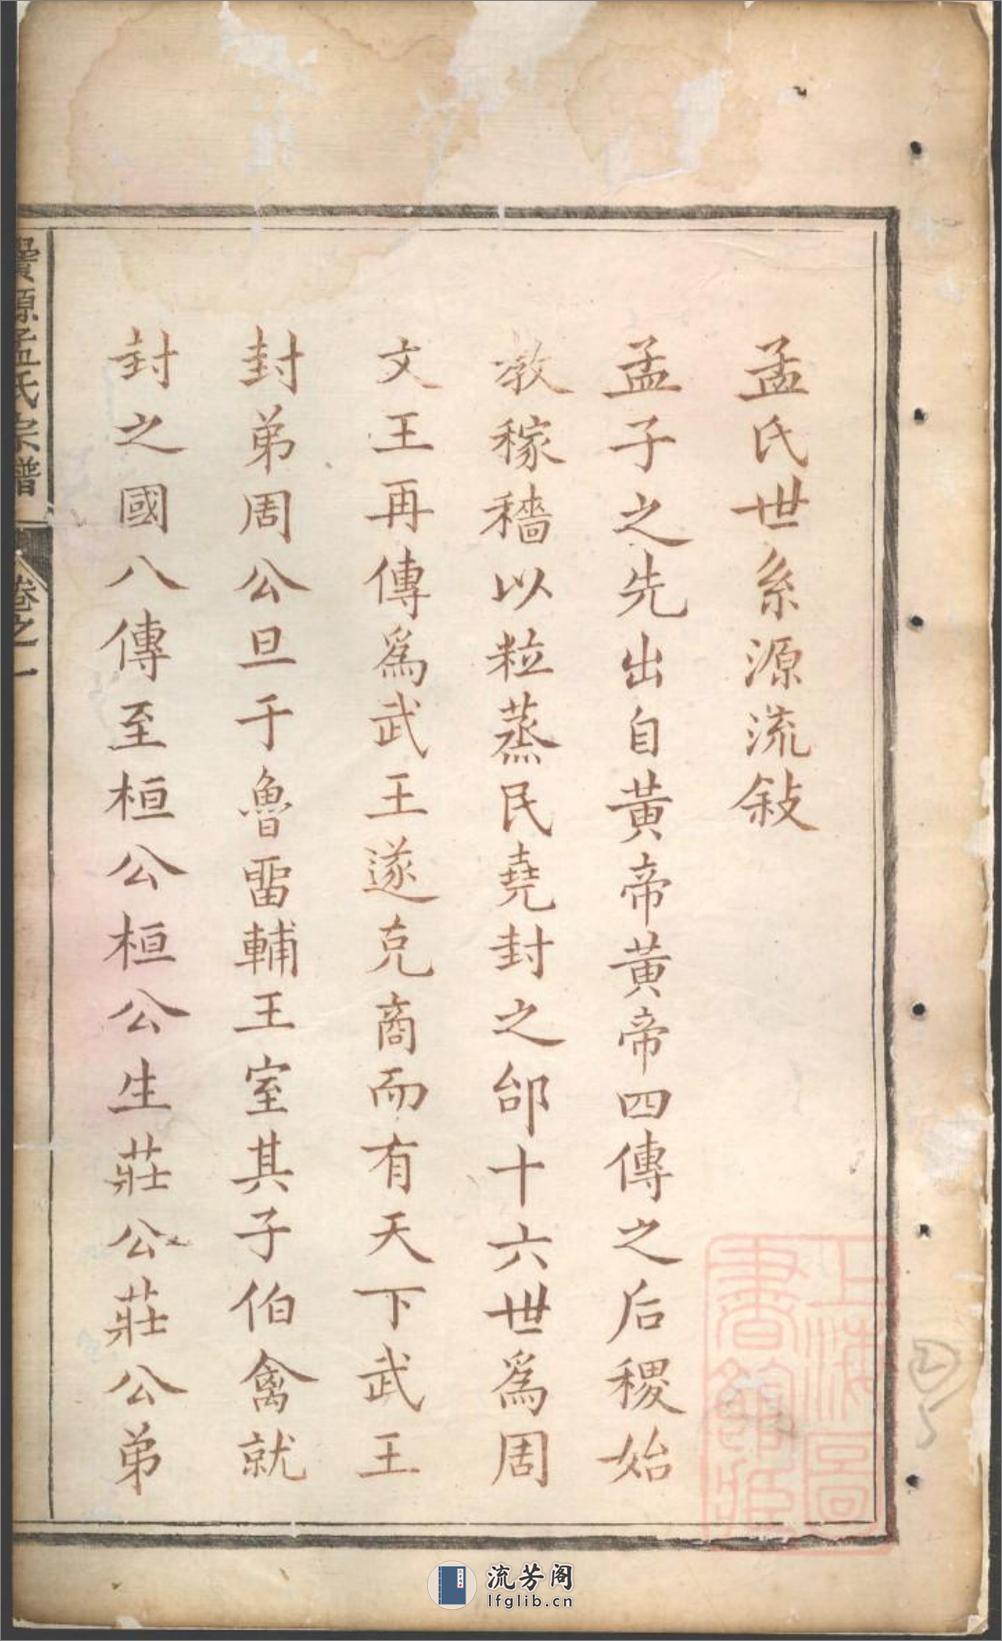 孟氏世系源流敍
孟子之先出自黃帝黃帝四傳之后稷始
教稼穡以粒蒸民堯封之邰十六世爲周
文王再傳爲武王遂克商而有天下武王
封弟周公旦于魯畱輔王室其子伯禽就
封之國八傳至桓公桓公生莊公莊公弟
源孟氏宗譜
卷之一
上海圖
書館藏
流芳阁
lfglib.cn